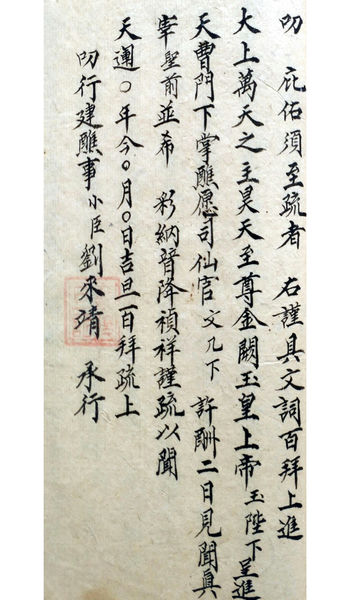 叨 庇佑須至疏者 右謹具文詞百拜上進
大上萬天之主昊天至尊金闕玉皇上帝玉陛下呈進
天曹門下掌醮愿司仙官文几下 許酬二日見聞具
宰聖前並希 彩納皆降禎祥謹疏以聞
天運〇年今〇月〇日吉旦百拜疏上
叨行建醮事小臣劉禾靖 承行